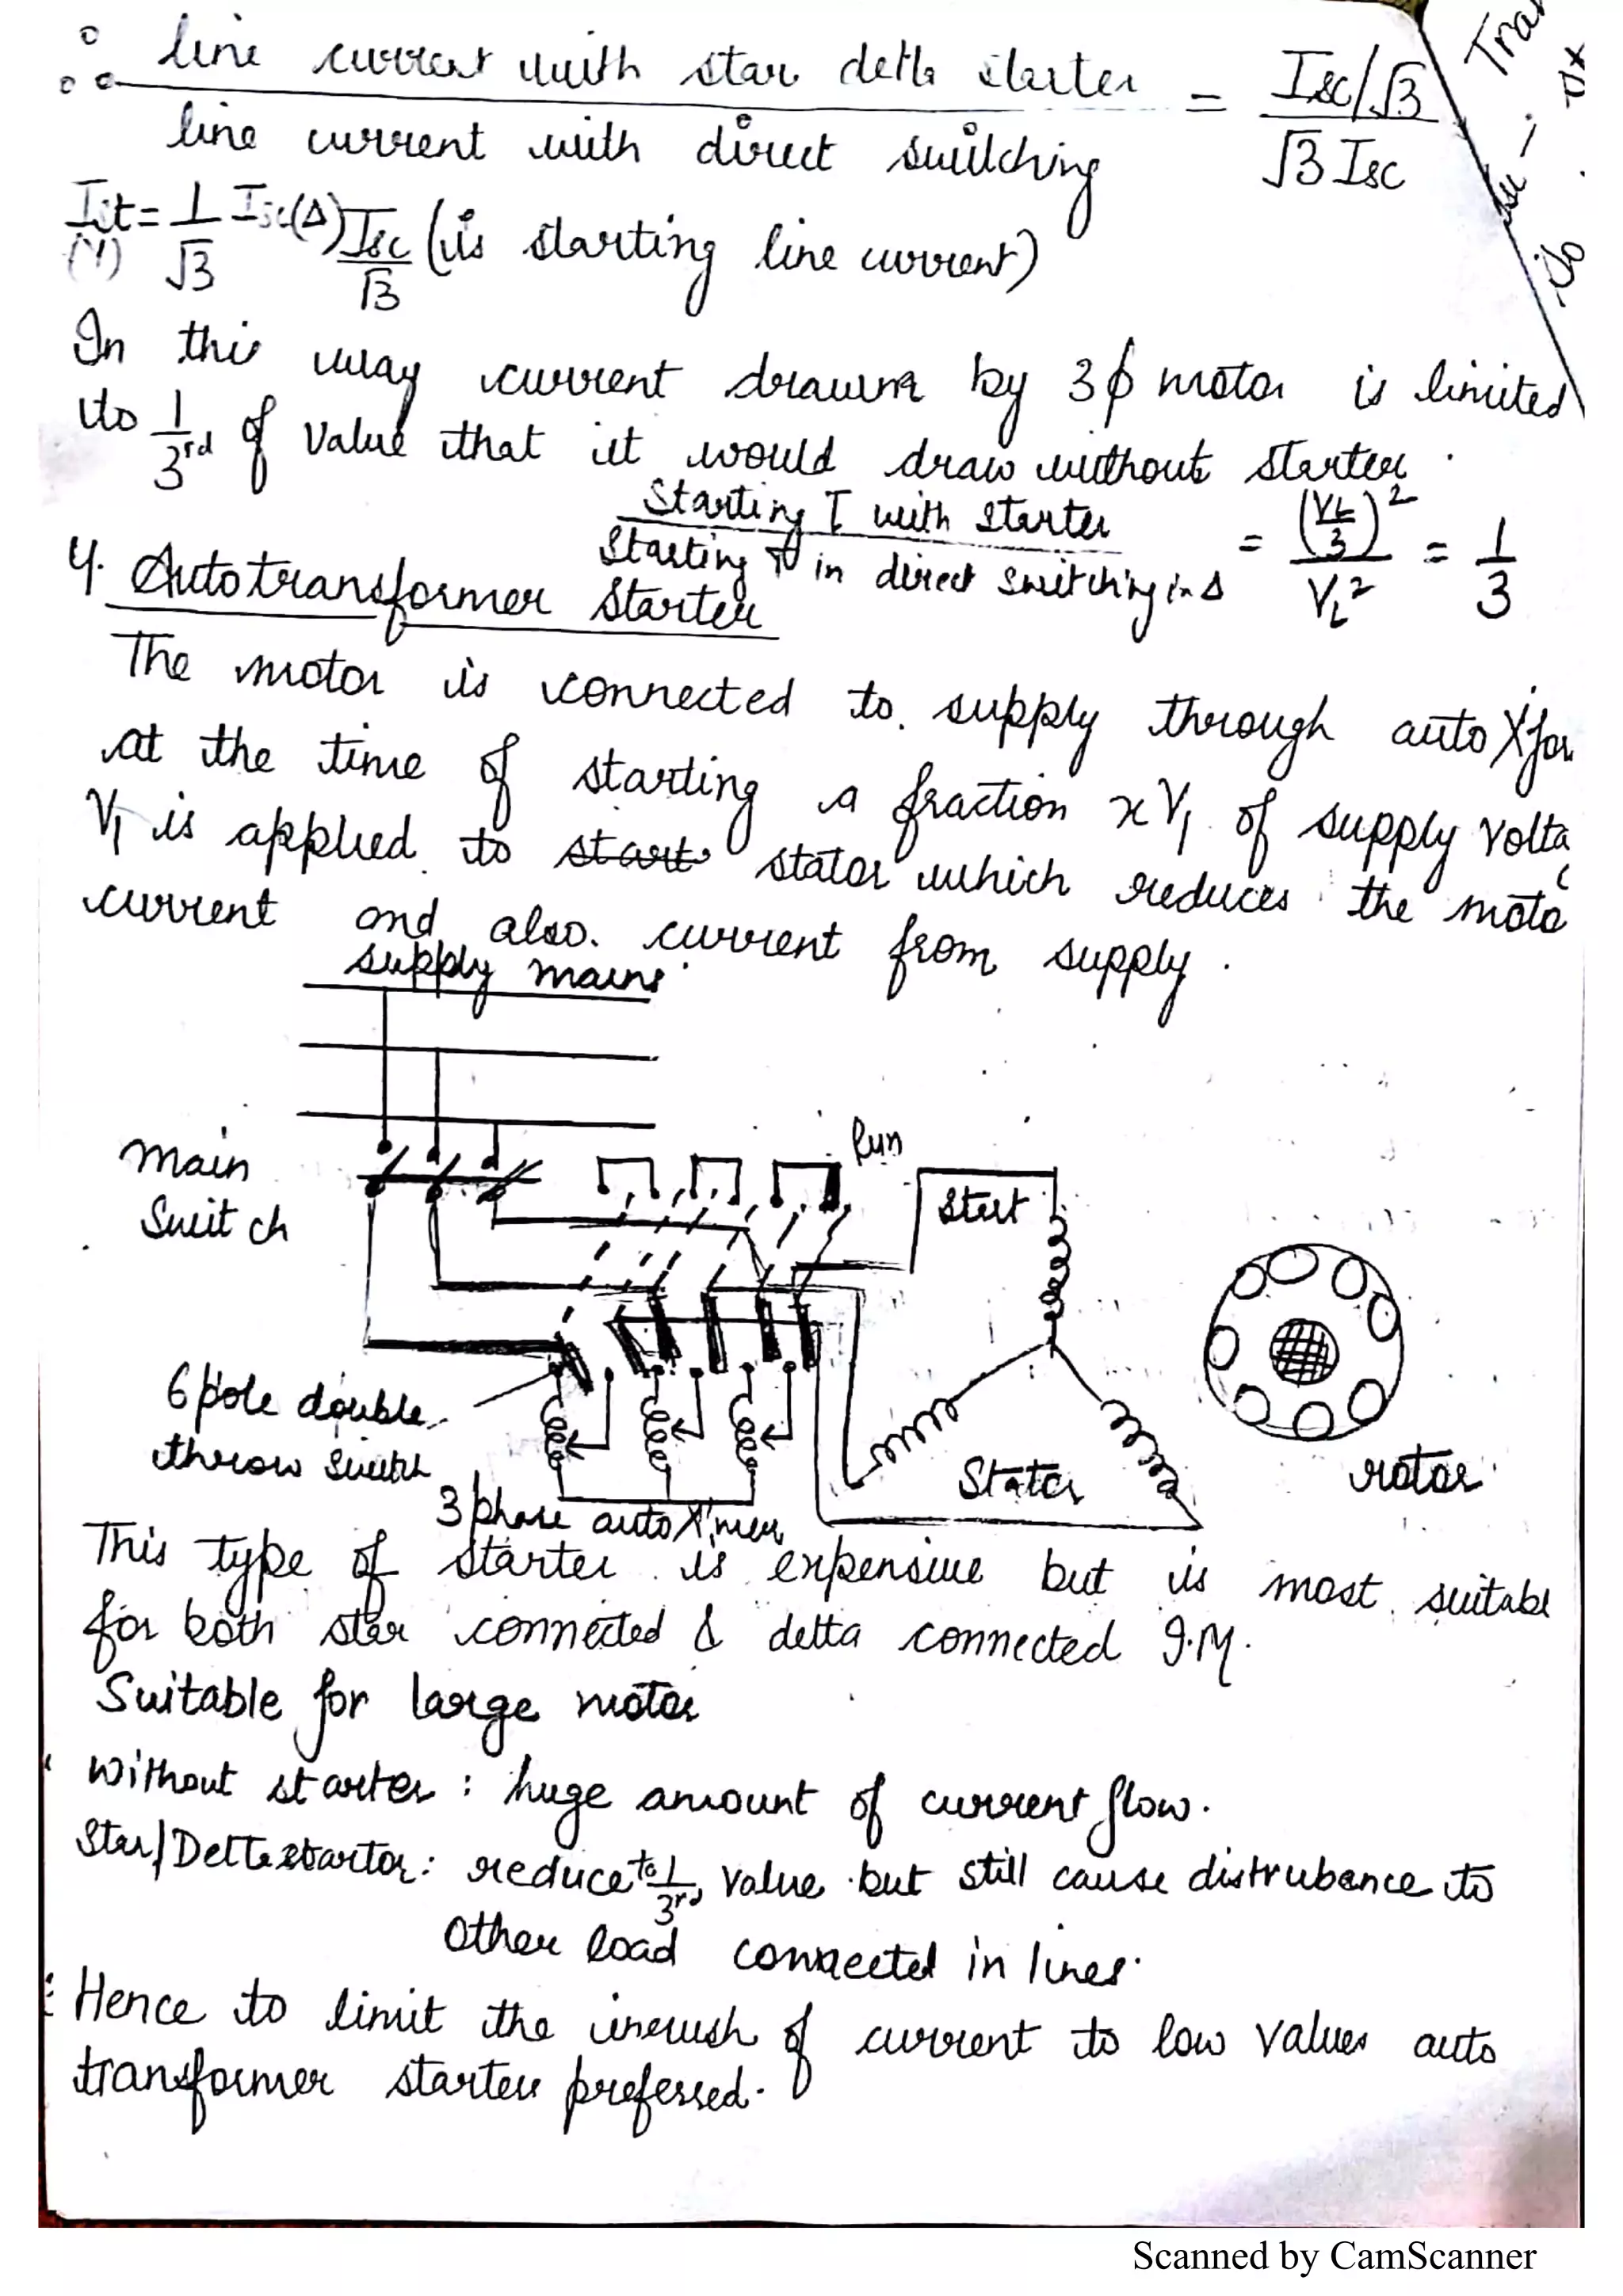 ∴ line current with star delta starter = Isc/√3
line current with direct switching √3 Isc
Ist (Y) = 1/√3 Isc(Δ) Isc/√3 (is starting line current)
In this way current drawn by 3ϕ motor is limited
to 1/3rd of value that it would draw without starter.
Starting T with starter = (VL/3)² = 1
Starting T in direct switching in Δ VL² 3
4. Autotransformer Starter
The motor is connected to supply through auto Xfor
at the time of starting a fraction xV1 of supply volta
V1 is applied to start stator which reduces the moto
current and also current from supply.
supply mains
Main
Switch
Run
Start
6 pole double
throw switch
3 phase auto X'mer
Stator
rotor
This type of starter is expensive but is most suitabl
for both star connected & delta connected I.M.
Suitable for large motor
Without starter: huge amount of current flow.
Star/Delta startor: reduce to 1/3rd value but still cause distrubance to
other load connected in lines.
Hence to limit the inrush of current to low values auto
transformer starter preferred.
Scanned by CamScanner